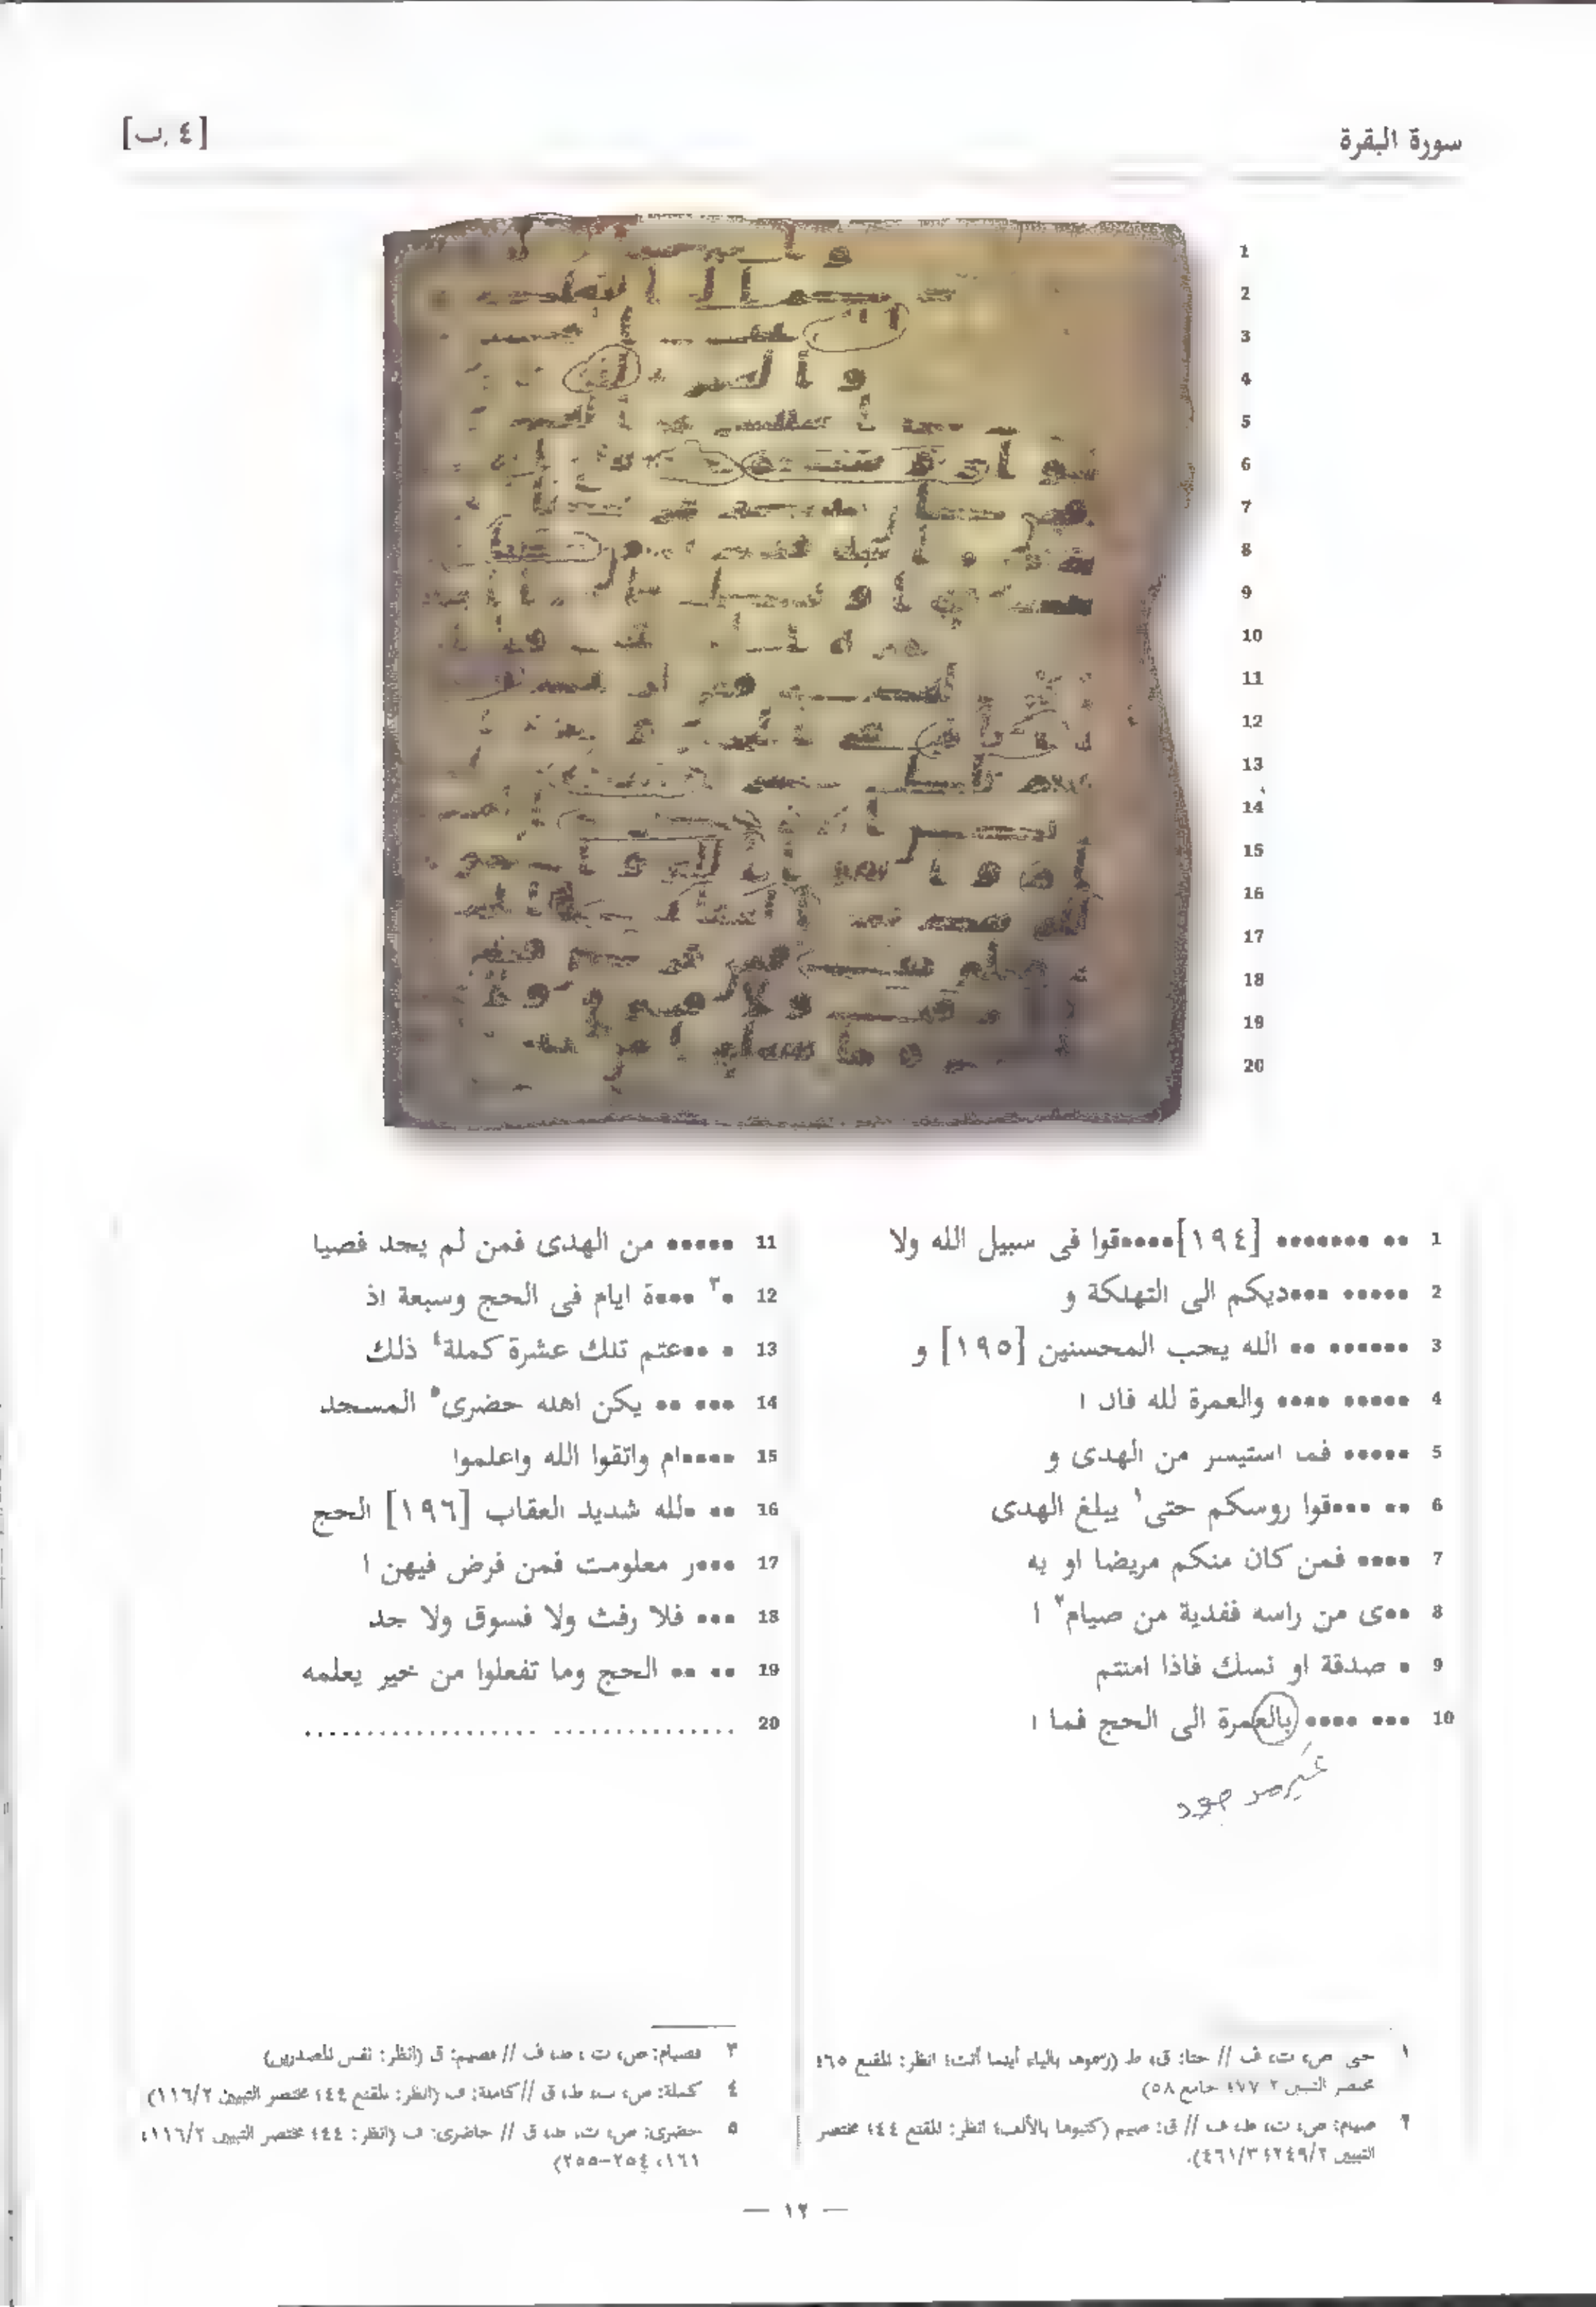 سورة البقرة
[٤.ب]
1
2
3
4
5
6
7
8
9
10
11
12
13
14
15
16
17
18
19
20
1 •• ••••••• [١٩٤]••••قوا فى سبيل الله ولا
2 ••••• •••ديكم الى التهلكة و
3 •••••• •• الله يحب المحسنين [١٩٥] و
4 ••••• •••• والعمرة لله فان ا
5 ••••• فما استيسر من الهدى و
6 •• ••••قوا روسكم حتى١ يبلغ الهدى
7 •••• فمن كان منكم مريضا او به
8 ••ى من راسه ففدية من صيام٢ ا
9 • صدقة او نسك فاذا امنتم
10 ••• •••• بالعمرة الى الحج فما ا
غير موجود
11 ••••• من الهدى فمن لم يجد فصيا
12 •٣ •••ة ايام فى الحج وسبعة اذ
13 • ••عتم تلك عشرة كملة٤ ذلك
14 ••• •• يكن اهله حضرى٥ المسجد
15 ••••ام واتقوا الله واعلموا
16 •• •لله شديد العقاب [١٩٦] الحج
17 •••ر معلومت فمن فرض فيهن ا
18 ••• فلا رفث ولا فسوق ولا جد
19 •• •• الحج وما تفعلوا من خير يعلمه
20 ..................................
١ حتى ص، ت، ف // حتا: ق، ط (رسموها بالياء أينما أتت؛ انظر: المقنع ٦٥؛
مختصر التبيين ٢ ٧٧؛ جامع ٥٨)
٢ صيام: ص، ت، ط، ف // ق: صيم (كتبوها بالألف؛ انظر: المقنع ٤٤؛ مختصر
التبيين ٢٤٩/٢؛ ٤٦١/٣).
٣ فصيام: ص، ت، ط، ف // فصيم: ق (انظر: نفس المصدرين)
٤ كملة: ص، ت، ط، ق // كاملة: ف (انظر: المقنع ٤٤؛ مختصر التبيين ١١٦/٢)
٥ حضرى: ص، ت، ط، ق // حاضرى: ف (انظر: ٤٤؛ مختصر التبيين ١١٦/٢،
١٦١، ٢٥٤-٢٥٥)
— ١٢ —